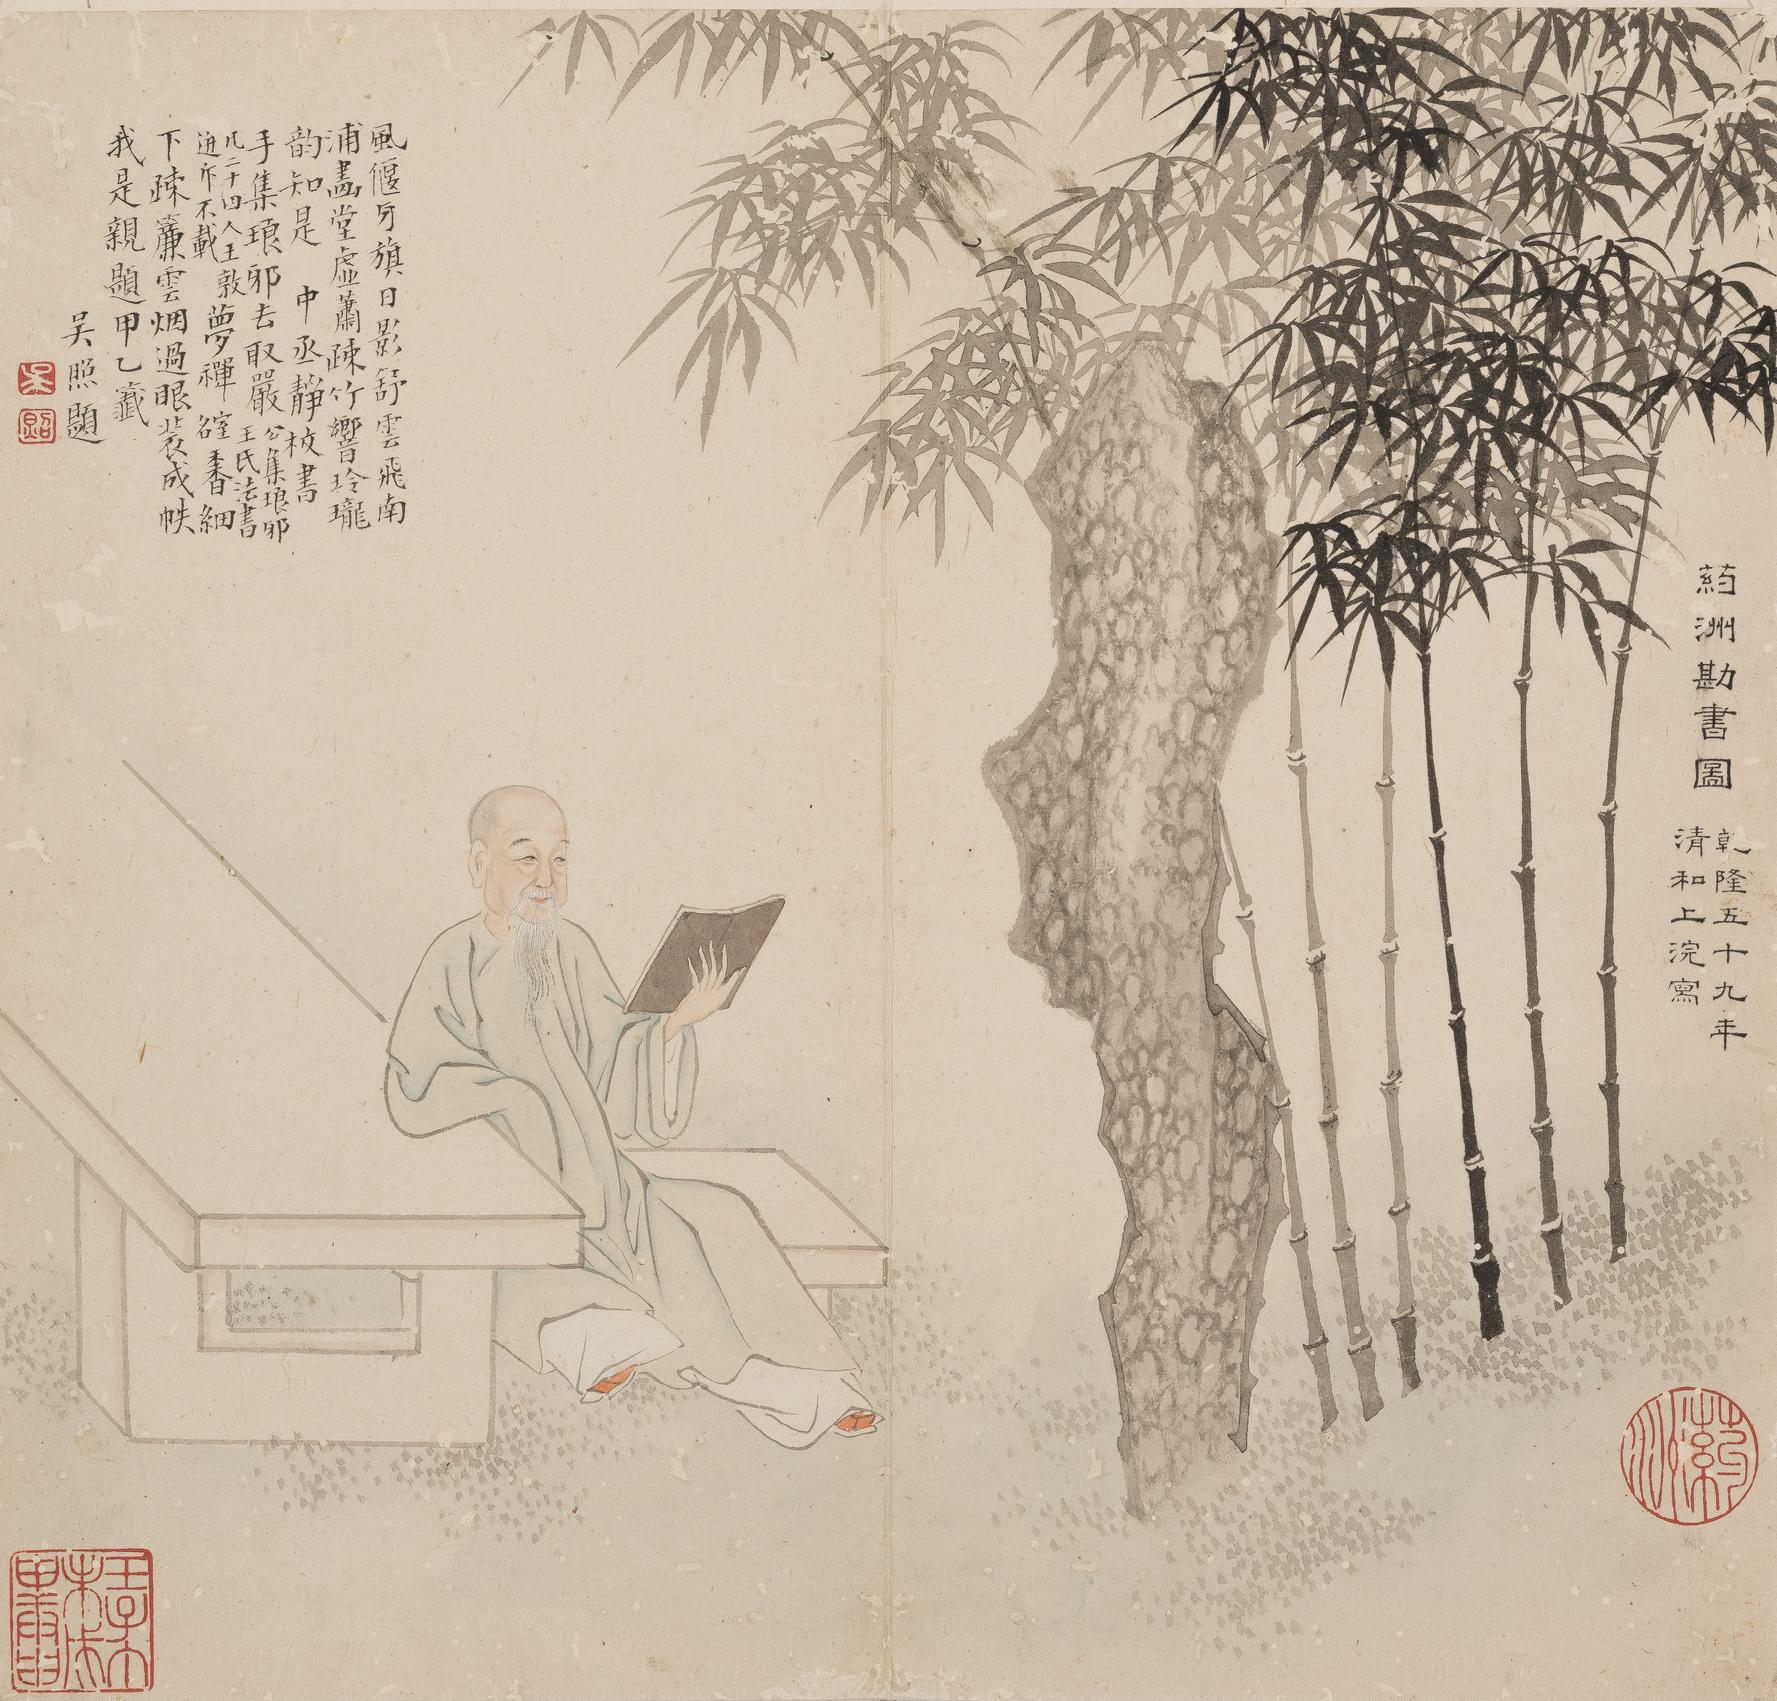 葯洲勘書圖
乾隆五十九年
清和上浣寫
風偃牙旗日影舒雲飛南
浦畵堂虛蕭疎竹響玲瓏
韵知是 中丞靜校書
手集琅邪去取嚴公集琅邪王氏法書
凡二十四人王敦導不載夢禪
下疎簾雲烟過眼裝成帙
我是親題甲乙籤
吳照題
吳
照